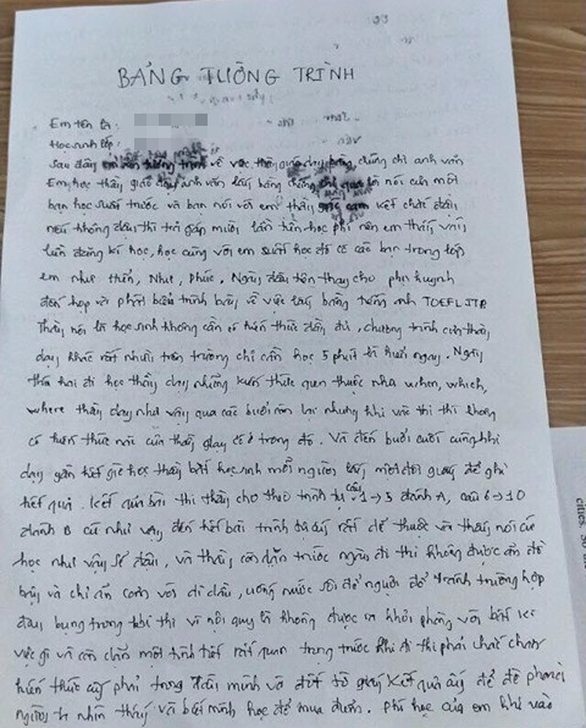 BẢNG TƯỜNG TRÌNH
Em tên là:
Học sinh lớp:
Sau đây em xin tường trình về việc thầy giáo dạy bằng chứng chỉ anh văn
Em học thầy giáo dạy anh văn lấy bằng chứng chỉ qua lời nói của một
bạn học suất trước và bạn nói với em thầy cam kết chắc đậu
nếu không đậu thì trả gấp mười lần tiền học phí nên em thấy vậy
liền đăng kí học, học cùng với em suất học đó có các bạn trong lớp
em như Thiên, Như, Phúc. Ngày đầu tiên thay cho phụ huynh
đến họp và phát biểu trình bày về việc lấy bằng tiếng anh TOEFL ITP
Thầy nói là học sinh không cần có kiến thức đầy đủ, chương trình của thầy
dạy khác rất nhiều trên trường chỉ cần học 5 phút là hiểu ngay. Ngày
thứ hai đi học thầy dạy những kiến thức quen thuộc như when, which,
where thầy dạy như vậy qua các buổi còn lại nhưng khi vào thi thì không
có kiến thức nào của thầy dạy có ở trong đó. Và đến buổi cuối cùng khi
dạy gần hết giờ học thầy bắt học sinh mỗi người lấy một đôi giấy để ghi
kết quả. Kết quả bài thi thầy cho theo trình tự câu 1→5 đánh A, câu 6→10
đánh B cứ như vậy đến hết bài trình tự ấy rất dễ thuộc và thầy nói cứ
học như vậy sẽ đậu, và thầy còn dặn trước ngày đi thi không được ăn đồ
bậy và chỉ ăn cơm với dĩa dầu, uống nước sôi để nguội để tránh trường hợp
đau bụng trong khi thi vì nội quy là không được ra khỏi phòng với bất kì
việc gì và còn dặn một tình tiết rất quan trọng trước khi đi thi phải chắc chắn
kiến thức ấy phải trong đầu mình và đốt tờ giấy kết quả ấy để đề phòng
người ta nhìn thấy và biết mình học để mua điểm. Phí học của em khi vào